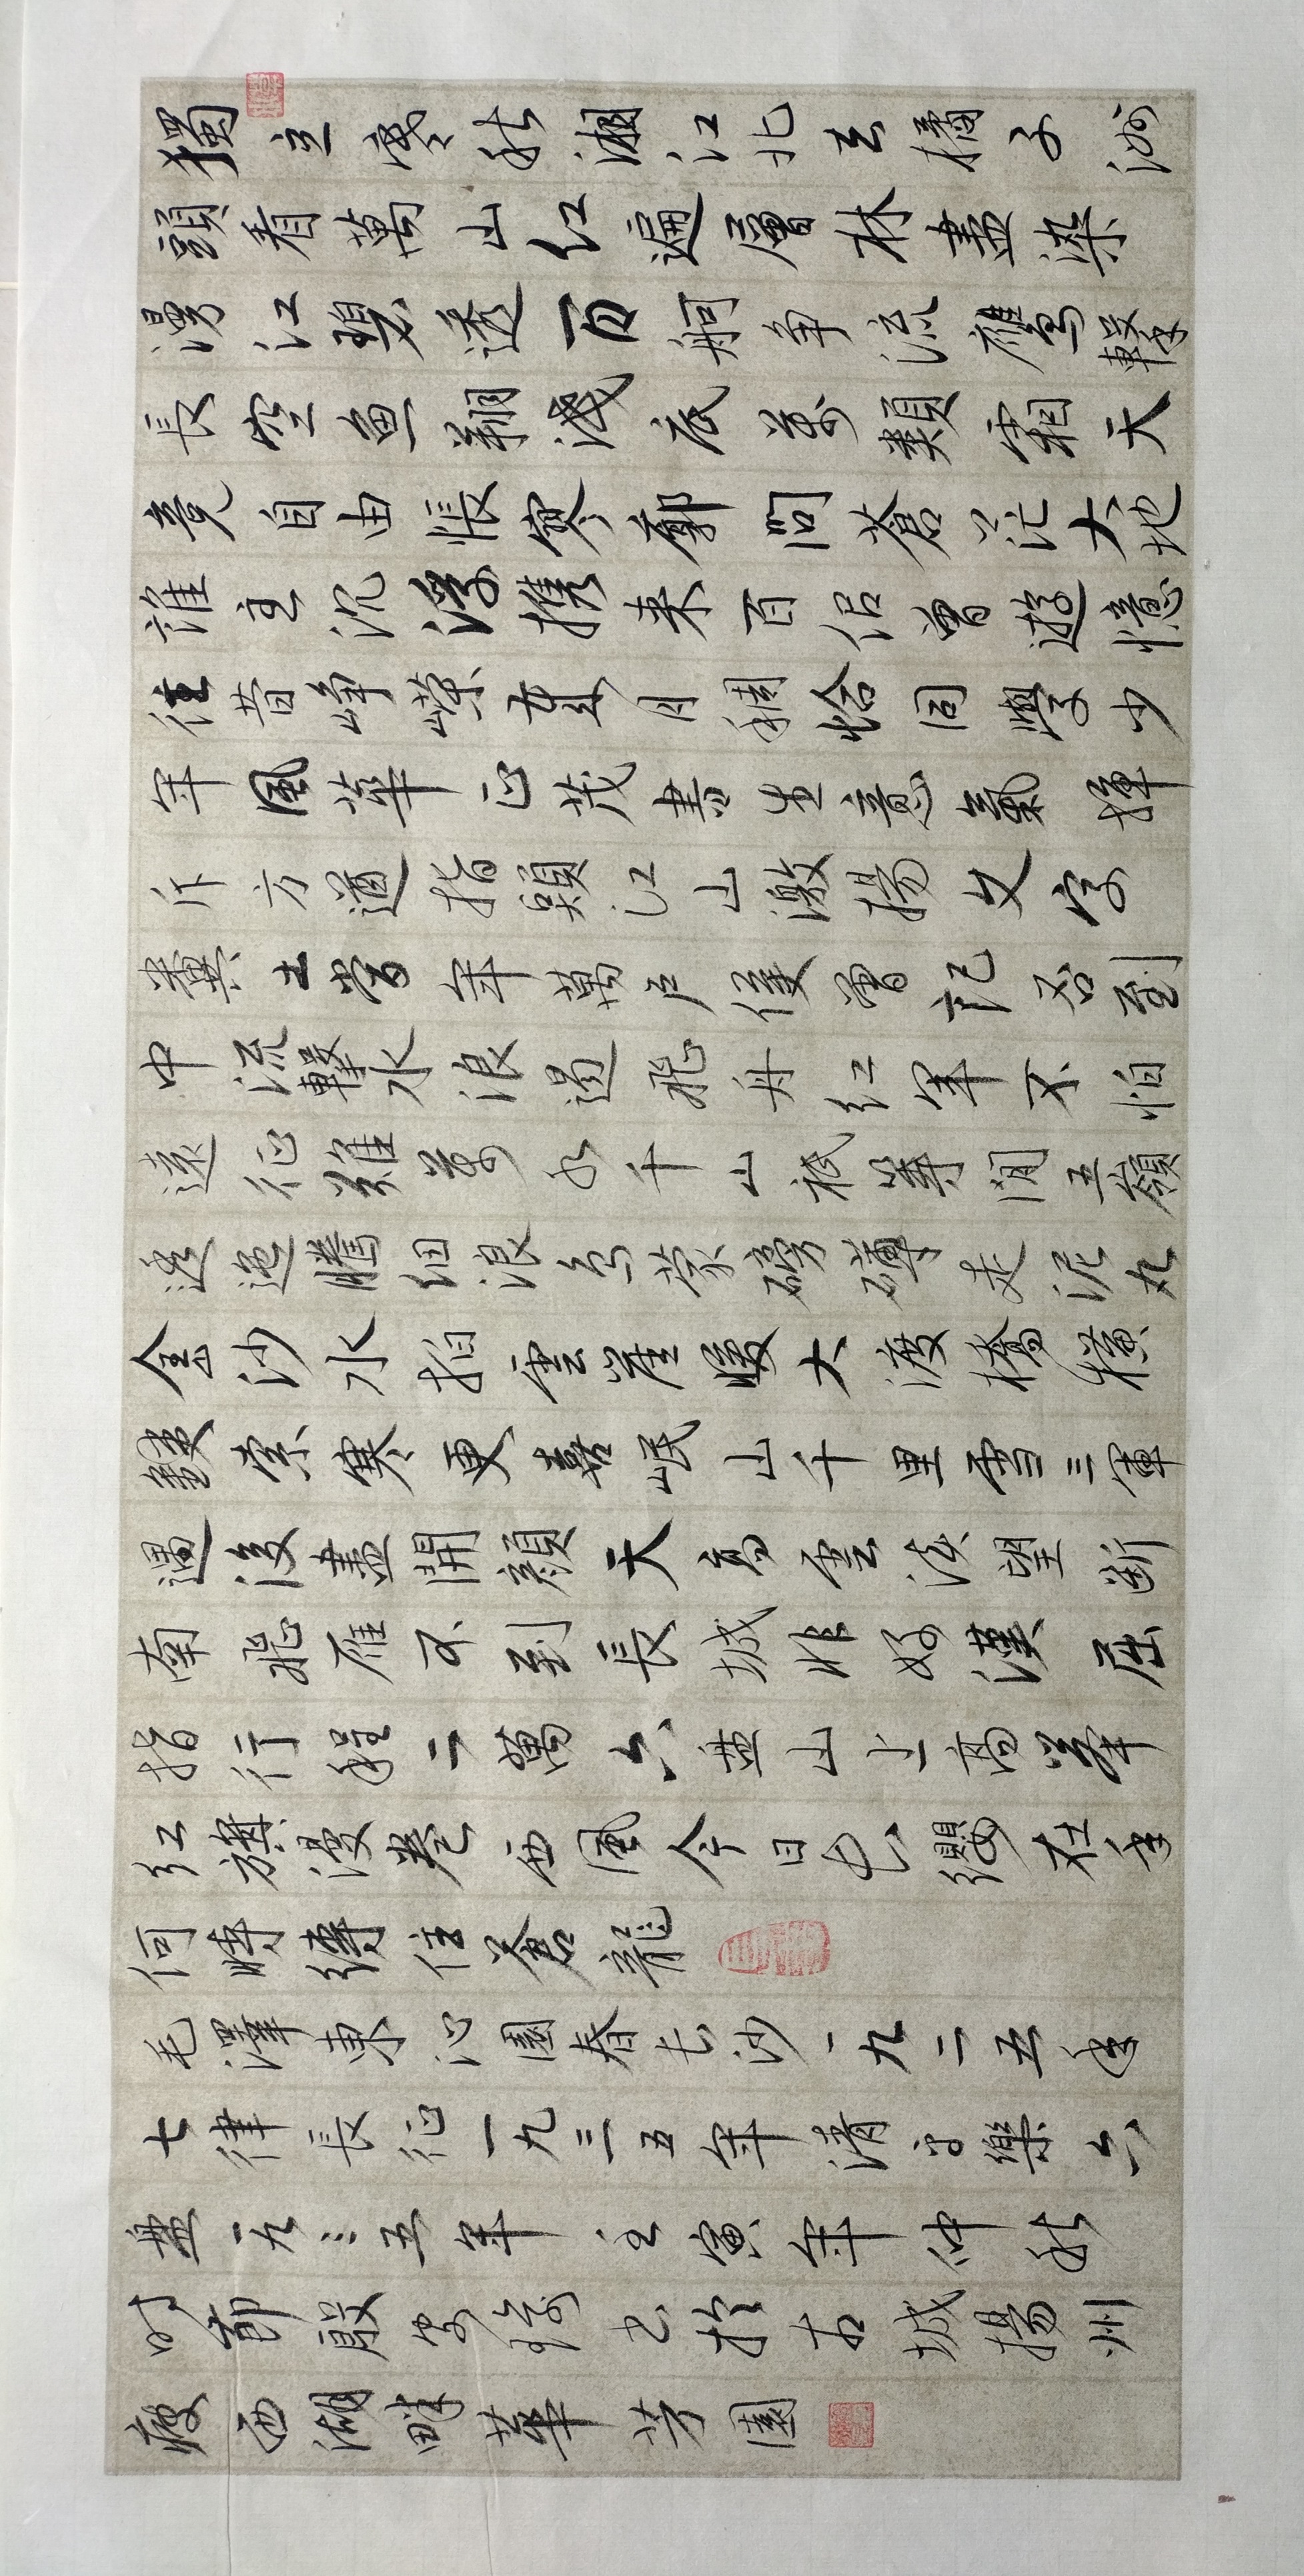 獨立寒秋湘江北去橘子洲
頭看萬山紅遍層林盡染
漫江碧透百舸爭流鷹擊
長空魚翔淺底萬類霜天
竞自由悵寥廓問蒼茫大地
誰主沉浮攜來百侣曾遊憶
往昔崢嶸歲月稠恰同學少
年風華正茂書生意氣揮
斥方遒指點江山激揚文字
糞土當年萬户侯曾記否到
中流擊水浪遏飛舟紅軍不怕
遠征難萬水千山衹等閒五嶺
逶迤騰細浪烏蒙磅礴走泥丸
金沙水拍雲崖暖大渡橋横
鐵索寒更喜岷山千里雪三軍
過後盡開顏天高雲淡望斷
南飛雁不到長城非好漢屈
指行程二萬六盤山上高峰
紅旗漫卷西風今日長纓在手
何時縛住蒼龍
毛澤東沁園春長沙一九二五年
七律長征一九三五年清平樂六
盤一九三五年 之寅年仲秋
时節殷 於古城揚州
瘦西湖畔華芳園